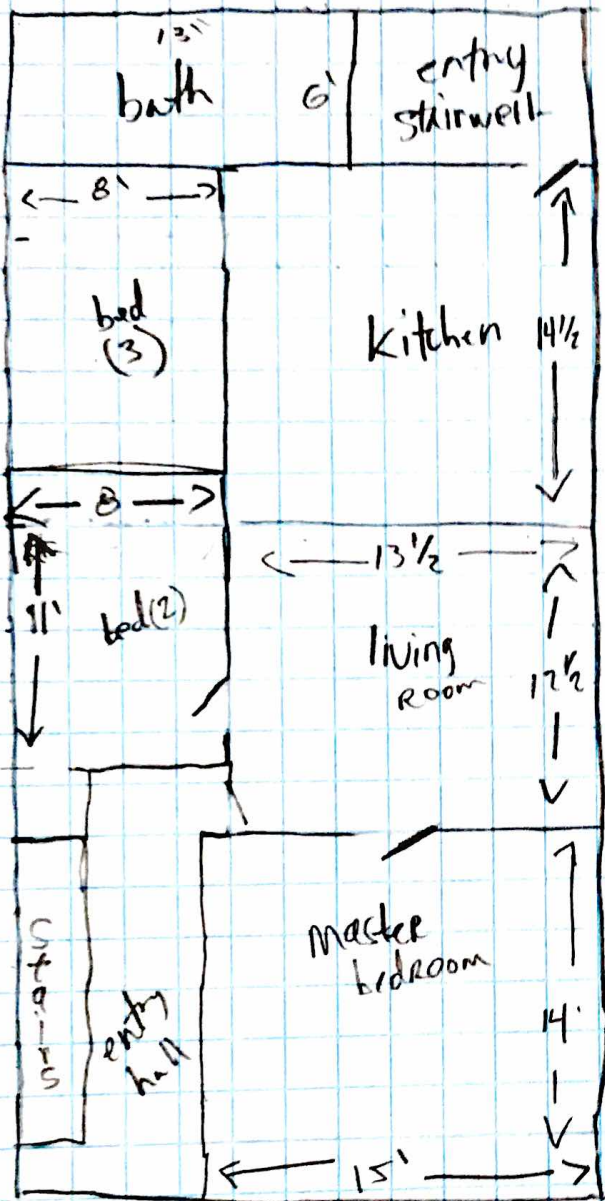 13"
bath
6'
entry
stairwell
8'
bed
(3)
Kitchen
14 1/2
8
11'
bed(2)
13 1/2
living
ROOM
12 1/2
Stairs
entry
hall
Master
bedroom
14'
15'